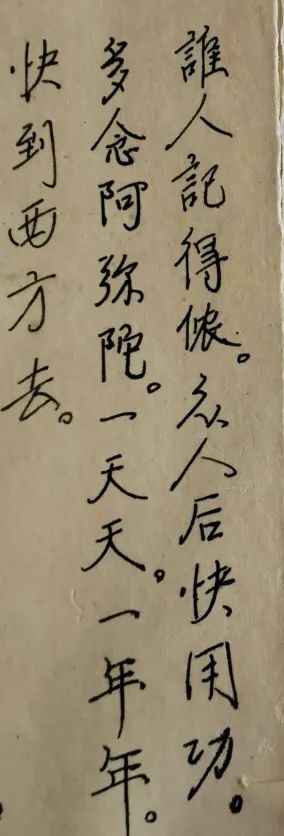 誰人記得侬。众人后快用功。
多念阿弥陀。一天天。一年年。
快到西方去。